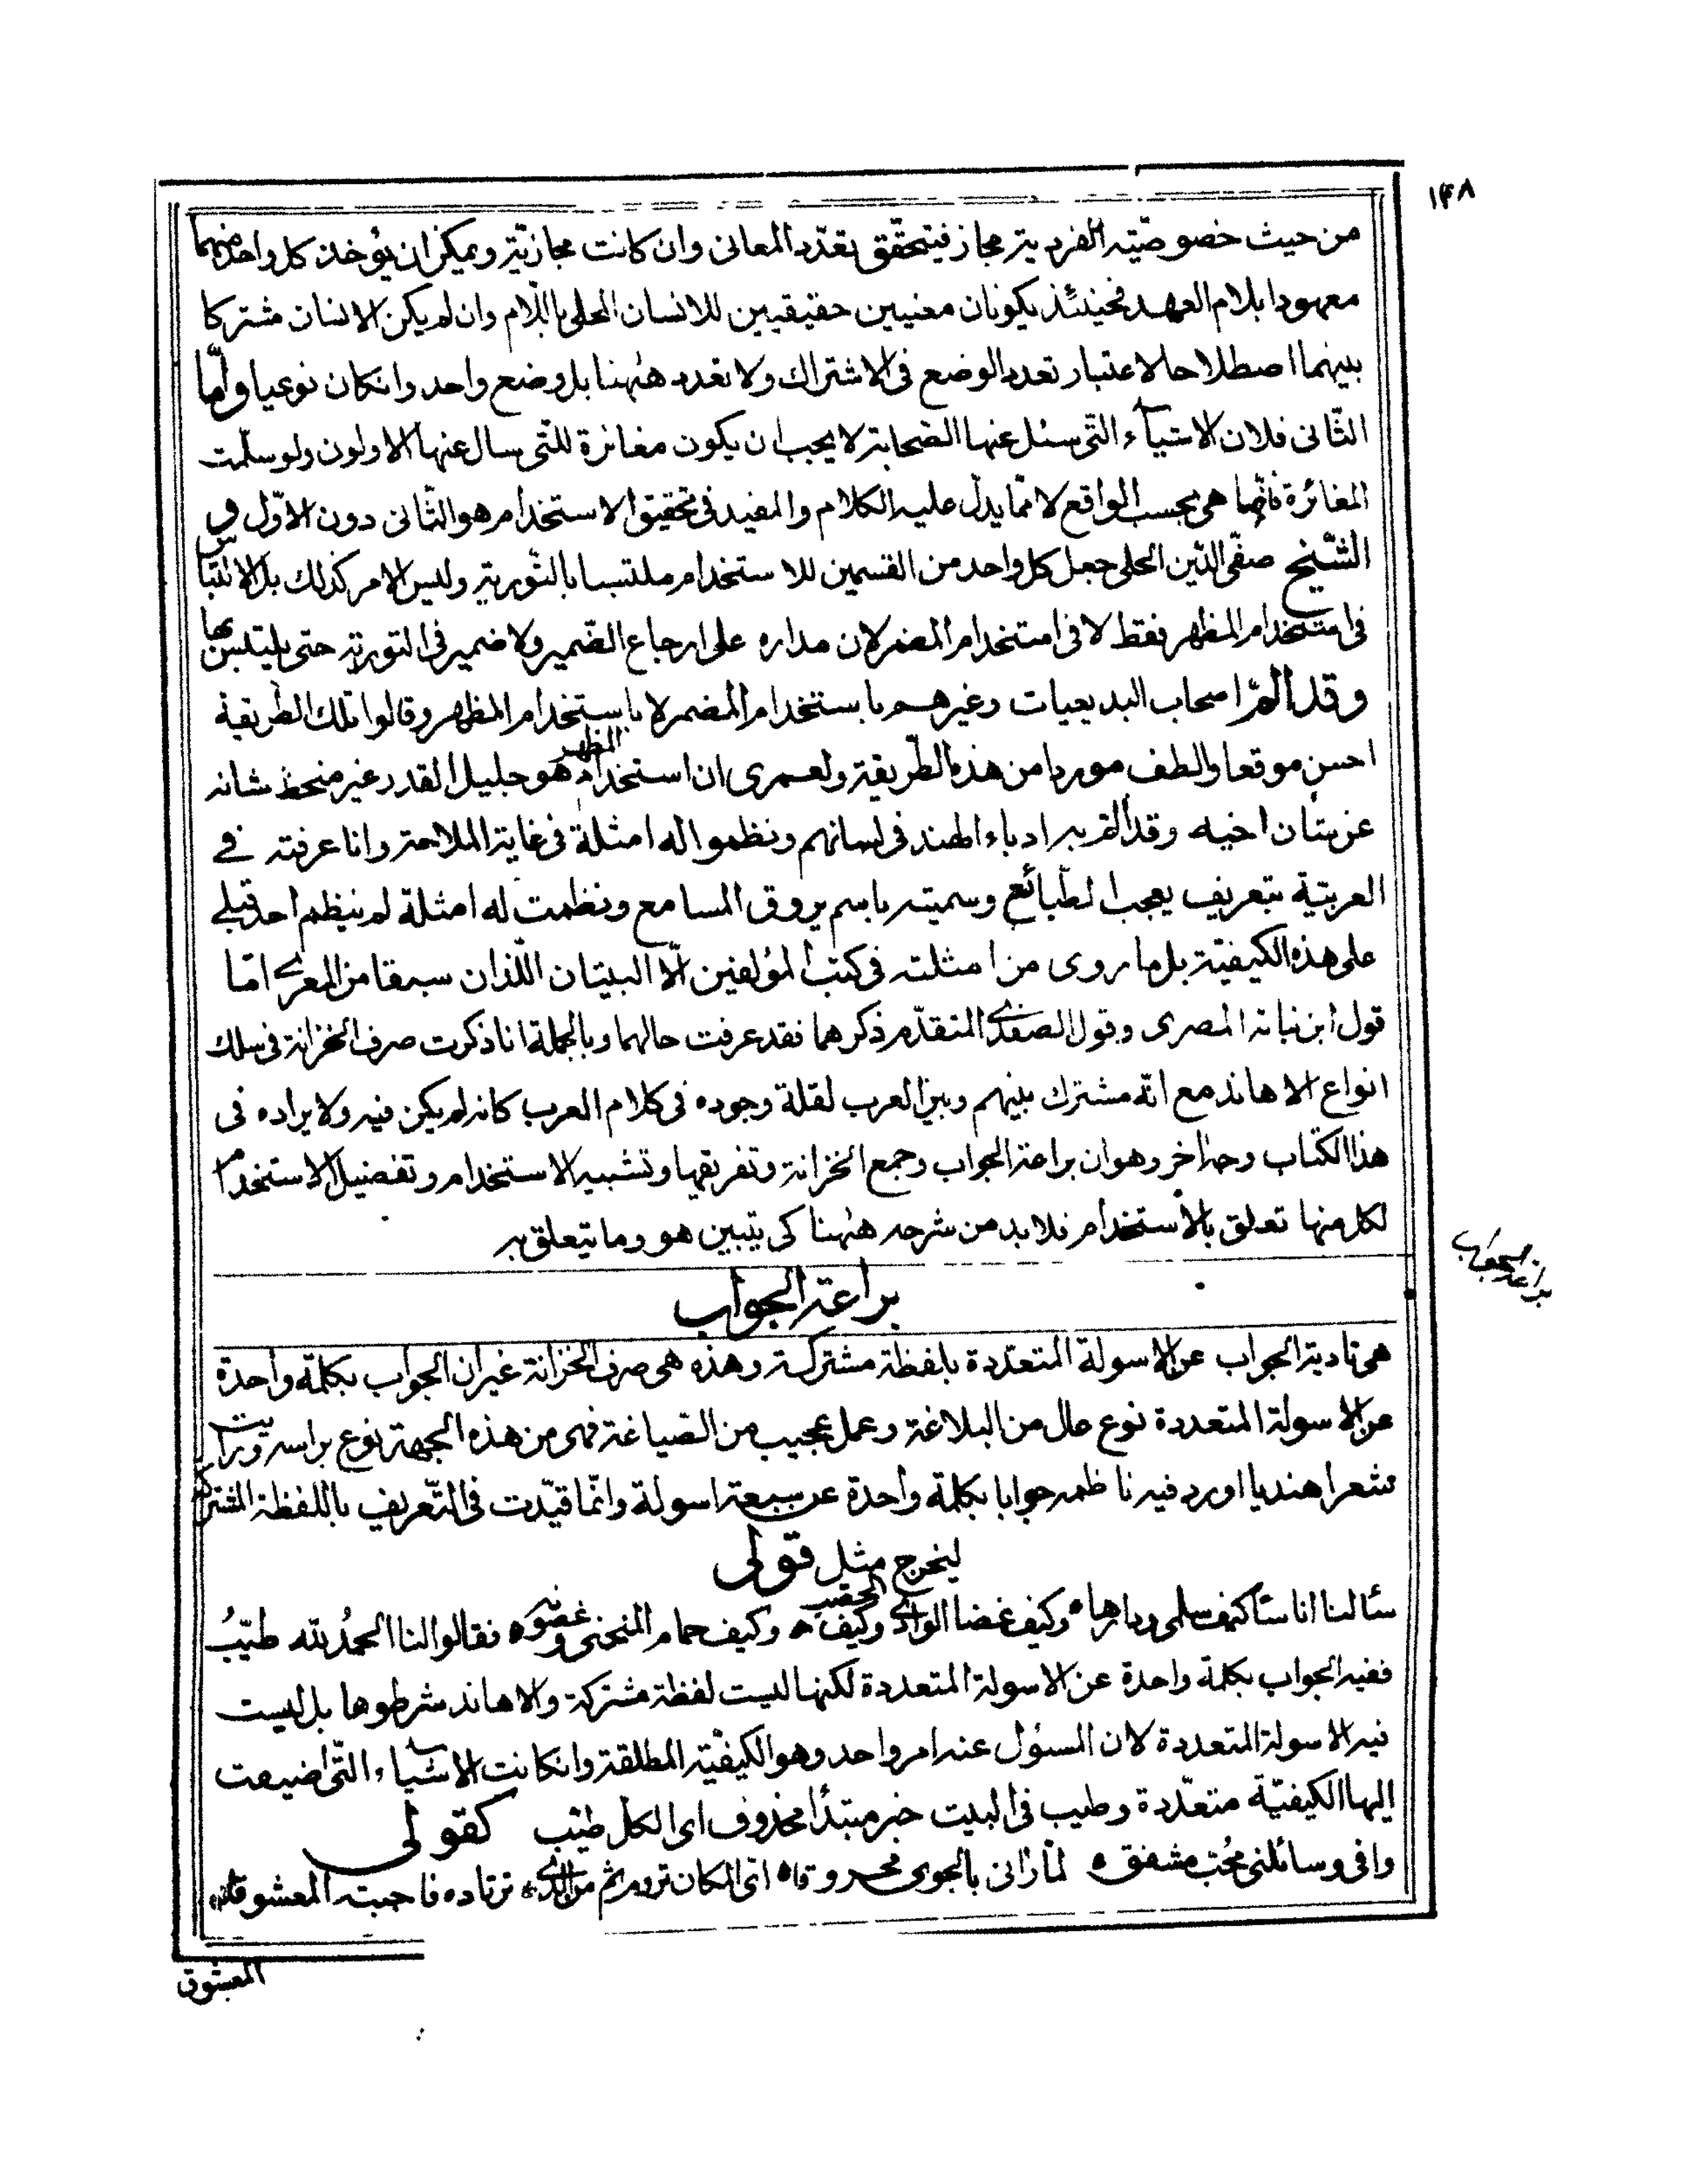 ١٤٨
من حيث خصوصيته الفردية مجاز فيتحقق تعدّد المعانى وان كانت مجازيّة ويمكن ان يؤخذ كل واحد منهما
معهودا بلام العهد فحينئذ يكونان معنيين حقيقيين للانسان المحلى باللام وان لم يكن الانسان مشتركا
بينهما اصطلاحا لاعتبار تعدد الوضع فى الاشتراك ولا تعدد ههنا بل وضع واحد وانكان نوعيا وامّا
الثّانى فلان الاشياء التى سئل عنها الصحابة لا يجب ان يكون مغائرة للتى سال عنها الاولون ولو سلّمت
المغائرة فانّما هى بحسب الواقع لا ممّا يدل عليه الكلام والمفيد فى تحقيق الاستخدام هو الثّانى دون الاوّل و
الشّيخ صفّى الدّين الحلى جعل كل واحد من القسمين للاستخدام ملتبسا بالتّورية وليس الامر كذلك بل الالتباس
فى استخدام المظهر فقط لا فى استخدام المضمر لان مداره على ارجاع الضّمير ولا ضمير فى التورية حتى يلتبس بها
وقد المّ اصحاب البديعيات وغيرهم باستخدام المضمر لا باستخدام المظهر وقالوا تلك الطريقة
احسن موقعا والطف موردا من هذه الطّريقة ولعمرى ان استخدام المظهر هو جليل القدر غير منحط شانه
عن شان اخيه وقد الم به ادباء الهند فى لسانهم ونظموا له امثلة فى غاية الملاحة وانا عرفته فى
العربيّة بتعريف يعجب الطبائع وسميته باسم يروق المسامع ونظمت له امثلة لم ينظم احد قبلى
على هذه الكيفيّة بل ما روى من امثلته فى كتب المؤلفين الّا البيتان اللّذان سبقا من المعرى امّا
قول ابن نباتة المصرى وقول الصفدى المتقدّم ذكرهما فقد عرفت حالهما وبالجملة انا ذكرت صرف الخزانة فى سلك
انواع الاهاند مع انّه مشترك بينهم وبين العرب لقلة وجوده فى كلام العرب كانه لم يكن فيه ولا يراده فى
هذا الكتاب وجه اخر وهو ان براعة الجواب وجمع الخزانة وتفريقها وتشبيه الاستخدام وتفضيل الاستخدام
لكل منها تعلق بالاستخدام فلا بد من شرحه ههنا كى يتبين هو وما يتعلق به
براعة الجواب
براعة الجواب
هى تادية الجواب عن الاسولة المتعدّدة بلفظة مشتركة وهذه هى صرف الخزانة غير ان الجواب بكلمة واحدة
عن الاسولة المتعددة نوع عال من البلاغة وعمل عجيب من الصّياغة فهى من هذه الجهة نوع براسه ورايت
شعرا هنديا اورد فيه ناظمه جوابا بكلمة واحدة عن سبعة اسولة وانّما قيّدت فى التّعريف باللفظة المشتركة
ليخرج مثل قولى
سئالنا اناسا كيف سلمى ودارها وكيف غضا الوادى وكيف المحصب وكيف حمام المنحنى وغصونه فقالوا لنا الحمدُ لله طيّبُ
ففيه الجواب بكلمة واحدة عن الاسولة المتعددة لكنها ليست لفظة مشتركة والاهاند شرطوها بل ليست
فيه الاسولة المتعددة لان المسئول عنه امر واحد وهو الكيفيّة المطلقة وانكانت الاشياء التّى اضيفت
اليها الكيفيّة متعدّدة وطيب فى البيت خبر مبتدأ محذوف اى الكل طيّب كقولى
وافى وسائلنى محُبّ مشفق لمّا رانى بالجوى محروقا اىّ المكان تروم ثم من الذى ترتاده فاجبته المعشوقا
المعشوق